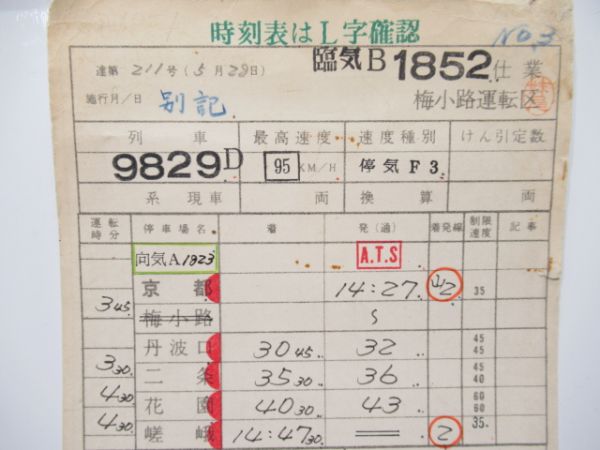 時刻表はL字確認
NO.3
達第 211号(5月29日)
臨気B1852仕業
施行月/日 別記 梅小路運転区
列車 最高速度 速度種別 けん引定数
9829D 95 KM/H 停気F3
系現車 両 換算 両
運転時分 停車場名 着 発(通) 着発線 制限速度 記事
向気A1823 A.T.S
京都 14:27 山2 35
345 梅小路 〃
丹波口 3045 32 45 45
330 二条 3530 36 45 40
430 花園 4030 43 60 60
430 嵯峨 14:4730 = 2 35